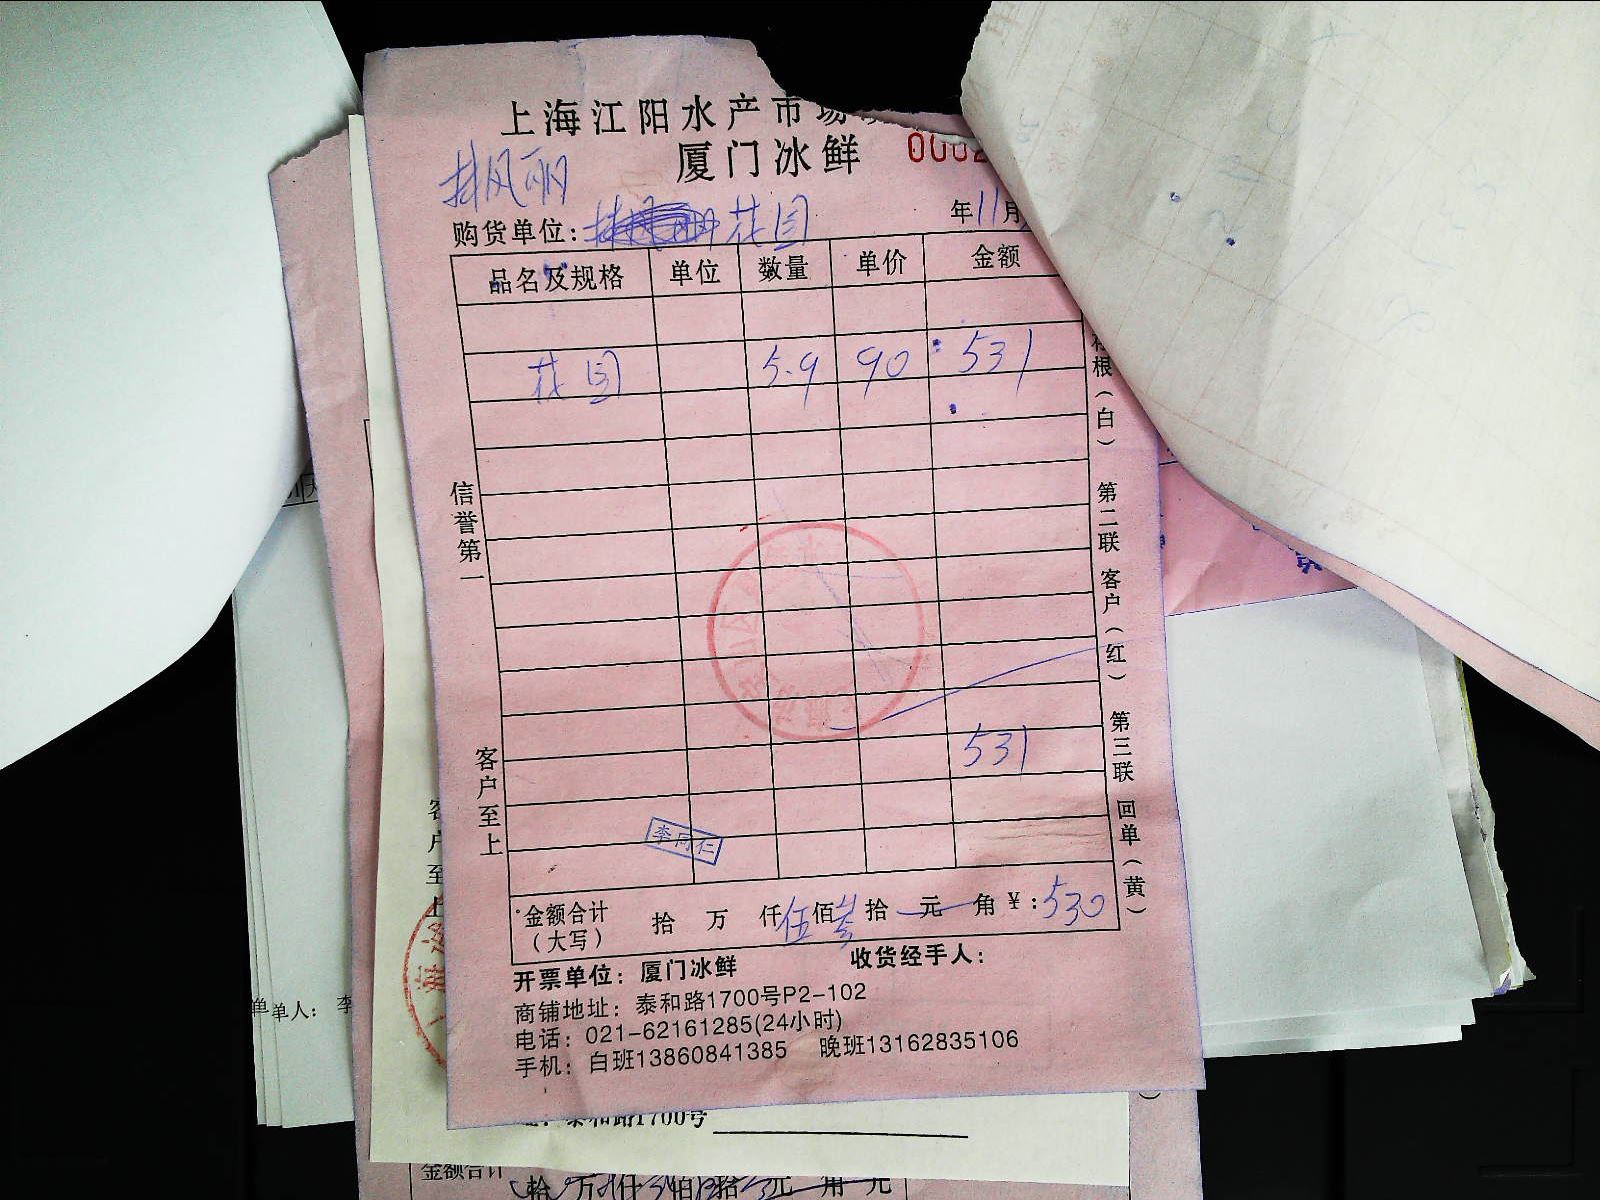 上海江阳水产市场
厦门冰鲜
0002
林凤丽
购货单位: 花园
年11月
品名及规格 单位 数量 单价 金额
花园 5.9 90 531
531
李同仁
金额合计(大写) 拾 万 仟伍佰叁拾 元 角 ¥:530
开票单位: 厦门冰鲜 收货经手人:
商铺地址: 泰和路1700号P2-102
电话: 021-62161285(24小时)
手机: 白班13860841385 晚班13162835106
信誉第一
客户至上
根(白) 第二联 客户(红) 第三联 回单(黄)
客户至上
单单人: 李
泰和路1700号
金额合计
拾 万 仟 佰 拾 元 角 元